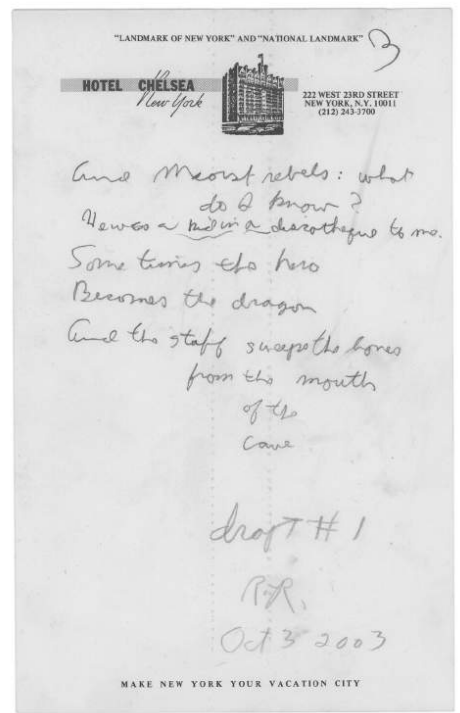 "LANDMARK OF NEW YORK" AND "NATIONAL LANDMARK"
3
HOTEL CHELSEA
New York
222 WEST 23RD STREET
NEW YORK, N.Y. 10011
(212) 243-3700
And Maoist rebels: what
do I know?
He was a kid in a discotheque to me.
Sometimes the hero
Becomes the dragon
And the staff sweeps the bones
from the mouth
of the
cave
draft #1
R.R.
Oct 3 2003
MAKE NEW YORK YOUR VACATION CITY